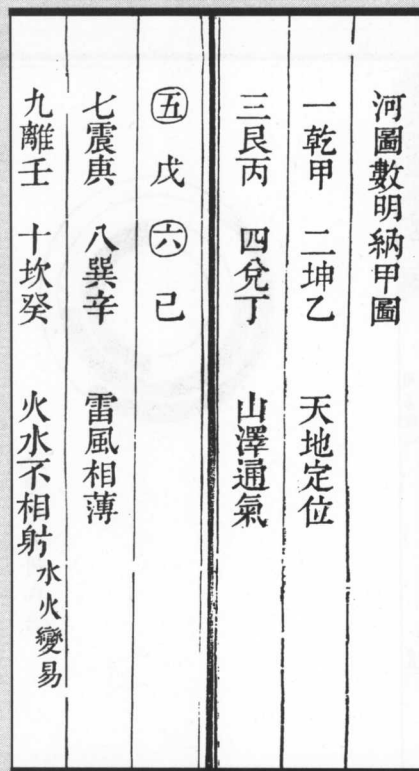 河圖數明納甲圖
一乾甲 二坤乙 天地定位
三艮丙 四兌丁 山澤通氣
五戊 六己
七震庚 八巽辛 雷風相薄
九離壬 十坎癸 火水不相射 水火變易